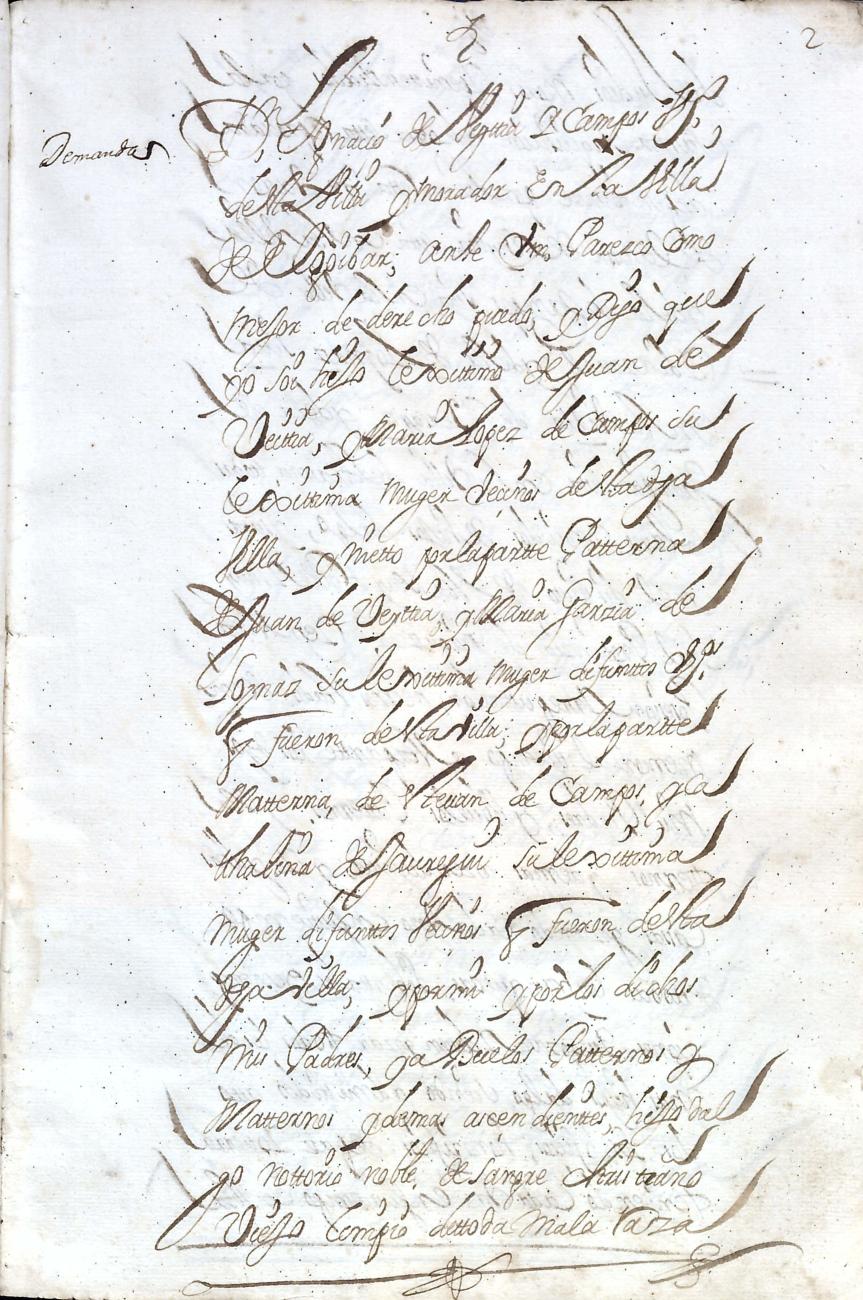 2
Demanda
Dn, Ignacio de Veytia y Campos Vº,
desta Villa y morador En la Villa
de Elgoibar; ante Vm, Paresco Como
mejor de derecho puedo, y Digo que
yo soi hijo lexittimo de Juan de
Veittia, y Maria Lopez de Campos su
lexittima muger Vecinos desta dha
Villa, y nietto por la partte Patterna
de Juan de Veyttia, y Maria Garzia de
su lexittima muger difunttos Vos.
q fueron desta Villa; y por la partte
Matterna, de Estevan de Campos, y Ca
thalina de Jauregui su lexittima
muger difunttos Vecinos q fueron desta
dha Villa, y por mi y por los dichos
mis Padres, y aBuelos Patternos y
Matternos y demas ascendienttes, hijo dal
go nottorio noble, de sangre Christiano
Viejo limpio de ttoda mala raza